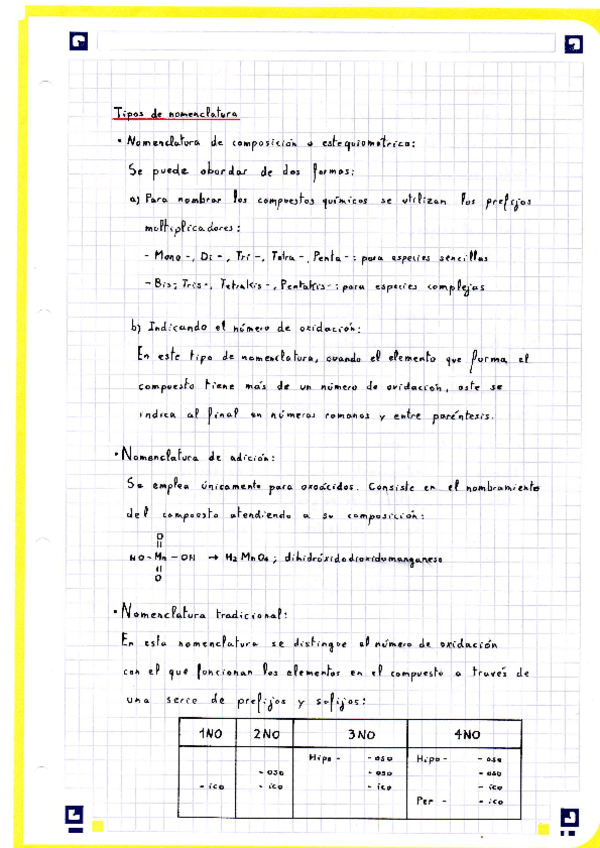 Tipos de nomenclatura
• Nomenclatura de composición o estequiométrica:
Se puede abordar de dos formas:
a) Para nombrar los compuestos químicos se utilizan los prefijos
multiplicadores:
- Mono -, Di -, Tri -, Tetra -, Penta -: para especies sencillas
- Bis-, Tris-, Tetrakis-, Pentakis-: para especies complejas
b) Indicando el número de oxidación:
En este tipo de nomenclatura, cuando el elemento que forma el
compuesto tiene más de un número de oxidación, este se
indica al final en números romanos y entre paréntesis.
• Nomenclatura de adición:
Se emplea únicamente para oxoácidos. Consiste en el nombramiento
del compuesto atendiendo a su composición:
O
HO - Mn - OH → H2MnO4; dihidróxidodioxidomanganeso
O
• Nomenclatura tradicional:
En esta nomenclatura se distingue el número de oxidación
con el que funcionan los elementos en el compuesto a través de
una serie de prefijos y sufijos:
1NO 2NO 3NO 4NO
Hipo - - oso Hipo - - oso
- oso - oso - oso
- ico - ico - ico - ico
Per - - ico